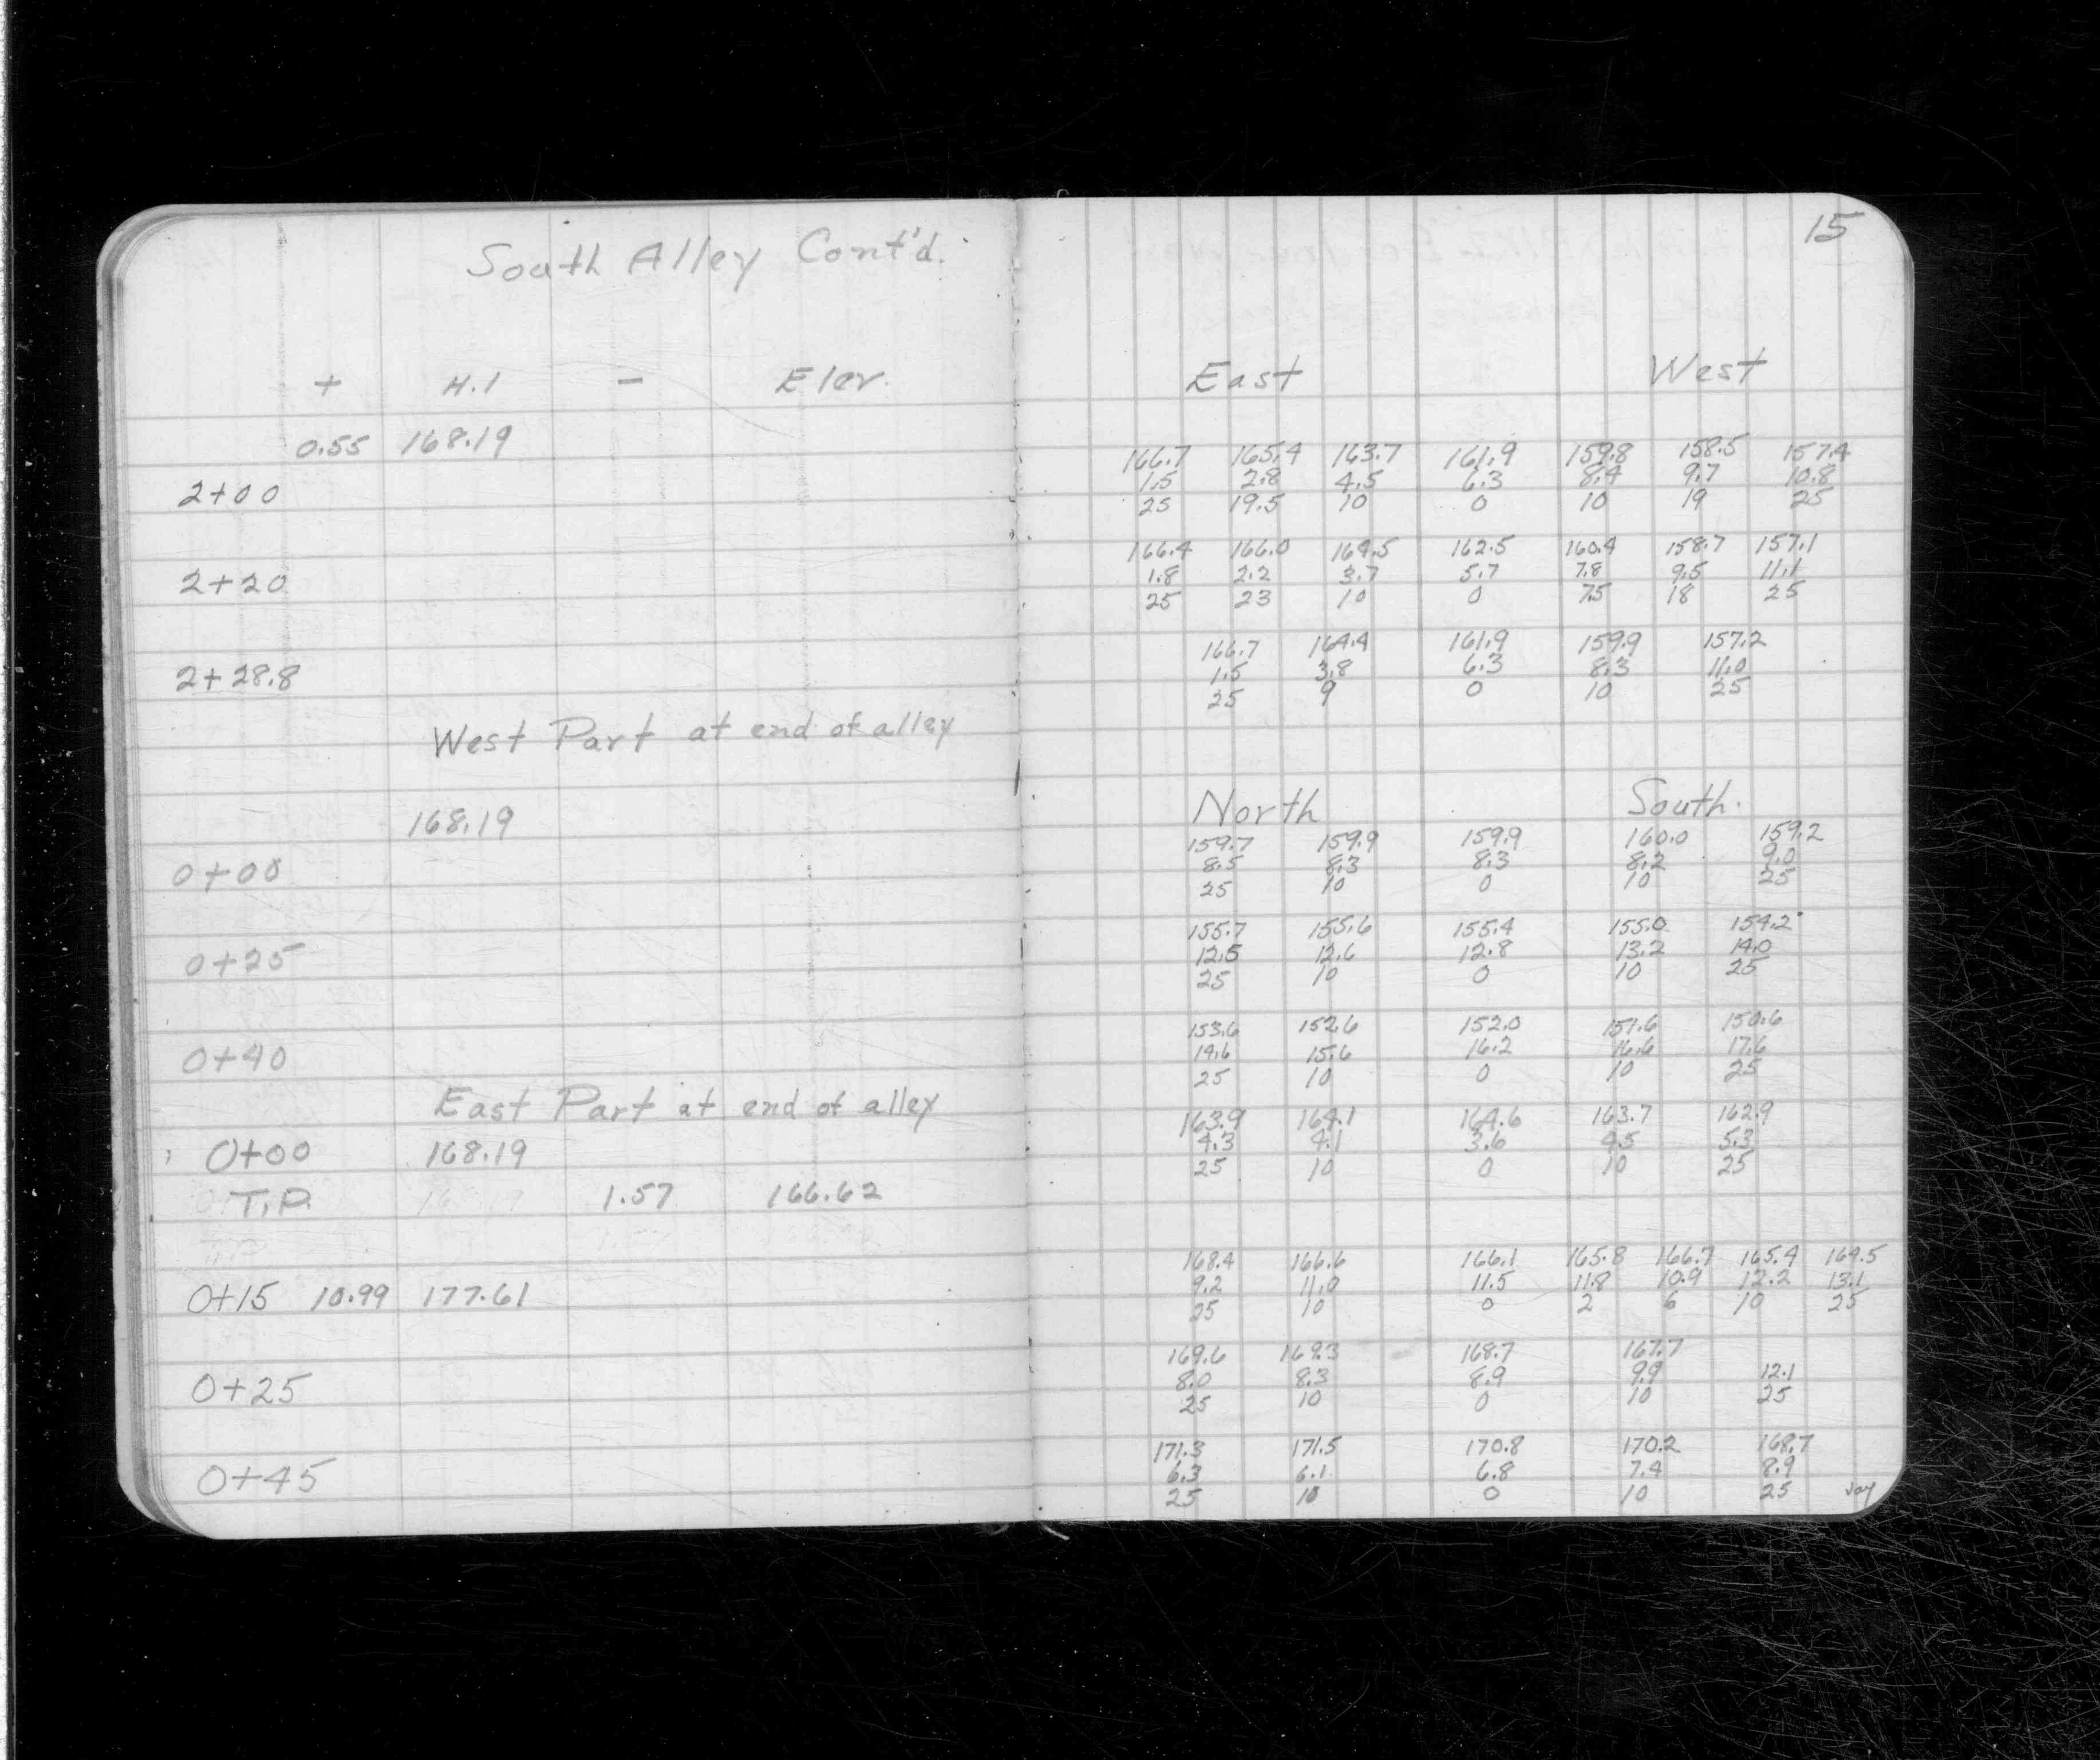 South Alley Cont'd.
+ H.I - Elev.
0.55 168.19
2+00
2+20
2+28.8
West Part at end of alley
168.19
0+00
0+25
0+40
East Part at end of alley
0+00 168.19
T.P. 1.57 166.62
0+15 10.99 177.61
0+25
0+45
15
East West
166.7 165.4 163.7 161.9 159.8 158.5 157.4
1.5 2.8 4.5 6.3 8.4 9.7 10.8
25 19.5 10 0 10 19 25
166.4 166.0 164.5 162.5 160.4 158.7 157.1
1.8 2.2 3.7 5.7 7.8 9.5 11.1
25 23 10 0 7.5 18 25
166.7 164.4 161.9 159.9 157.2
1.5 3.8 6.3 8.3 11.0
25 9 0 10 25
North South.
159.7 159.9 159.9 160.0 159.2
8.5 8.3 8.3 8.2 9.0
25 10 0 10 25
155.7 155.6 155.4 155.0 154.2
12.5 12.6 12.8 13.2 14.0
25 10 0 10 25
153.6 152.6 152.0 151.6 150.6
14.6 15.6 16.2 16.6 17.6
25 10 0 10 25
163.9 164.1 164.6 163.7 162.9
4.3 4.1 3.6 4.5 5.3
25 10 0 10 25
168.4 166.6 166.1 165.8 166.7 165.4 164.5
9.2 11.0 11.5 11.8 10.9 12.2 13.1
25 10 0 2 6 10 25
169.6 169.3 168.7 167.7
8.0 8.3 8.9 9.9 12.1
25 10 0 10 25
171.3 171.5 170.8 170.2 168.7
6.3 6.1 6.8 7.4 8.9
25 10 0 10 25
Jay